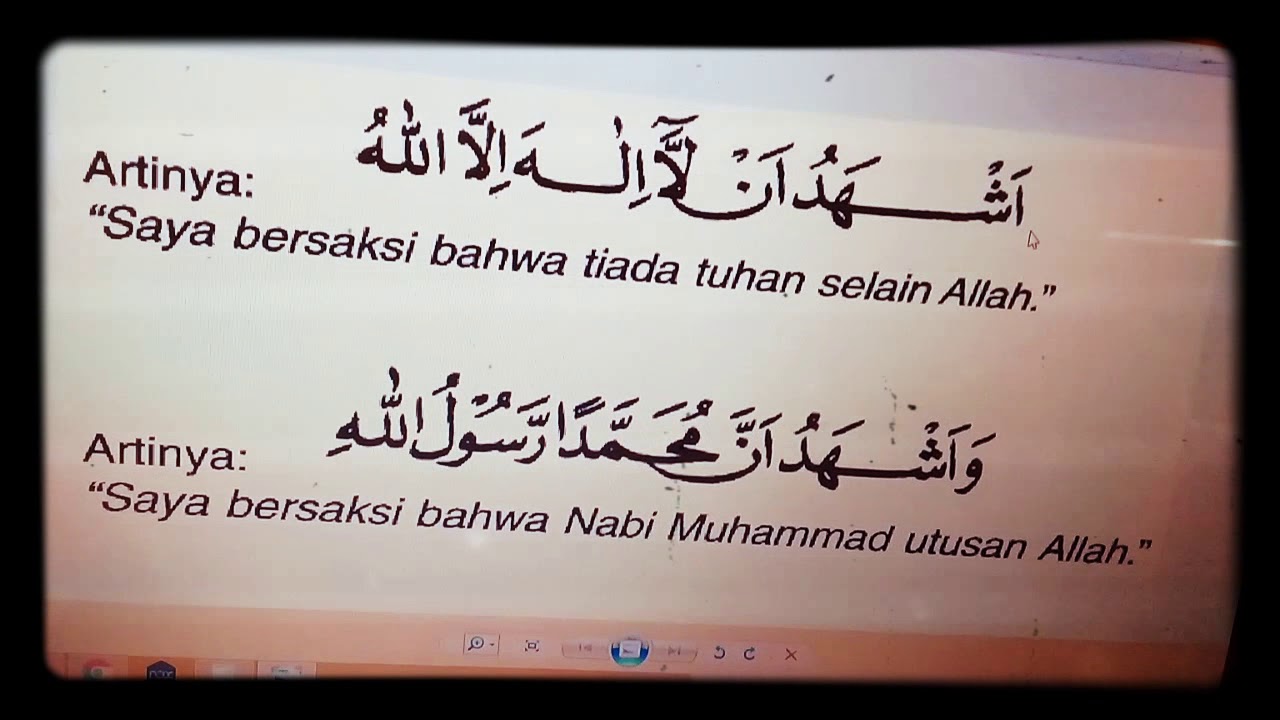 اَشْهَدُ اَنْ لَآ اِلٰهَ اِلَّا اللهُ
Artinya:
“Saya bersaksi bahwa tiada tuhan selain Allah.”
وَاَشْهَدُ اَنَّ مُحَمَّدًا رَّسُوْلُ اللهِ
Artinya:
“Saya bersaksi bahwa Nabi Muhammad utusan Allah.”